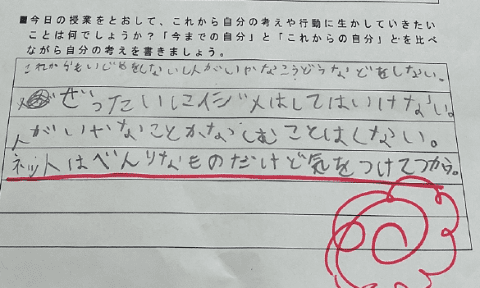 ■今日の授業をとおして、これから自分の考えや行動に生かしていきたい
ことは何でしょうか？「今までの自分」と「これからの自分」とを比べ
ながら自分の考えを書きましょう。
これからもいじめをしない人がいやなこうどうなどをしない。
ぜったいにイジメはしてはいけない。
人がいやなことかなしむことはしない。
ネットはべんりなものだけど気をつけてつかう。